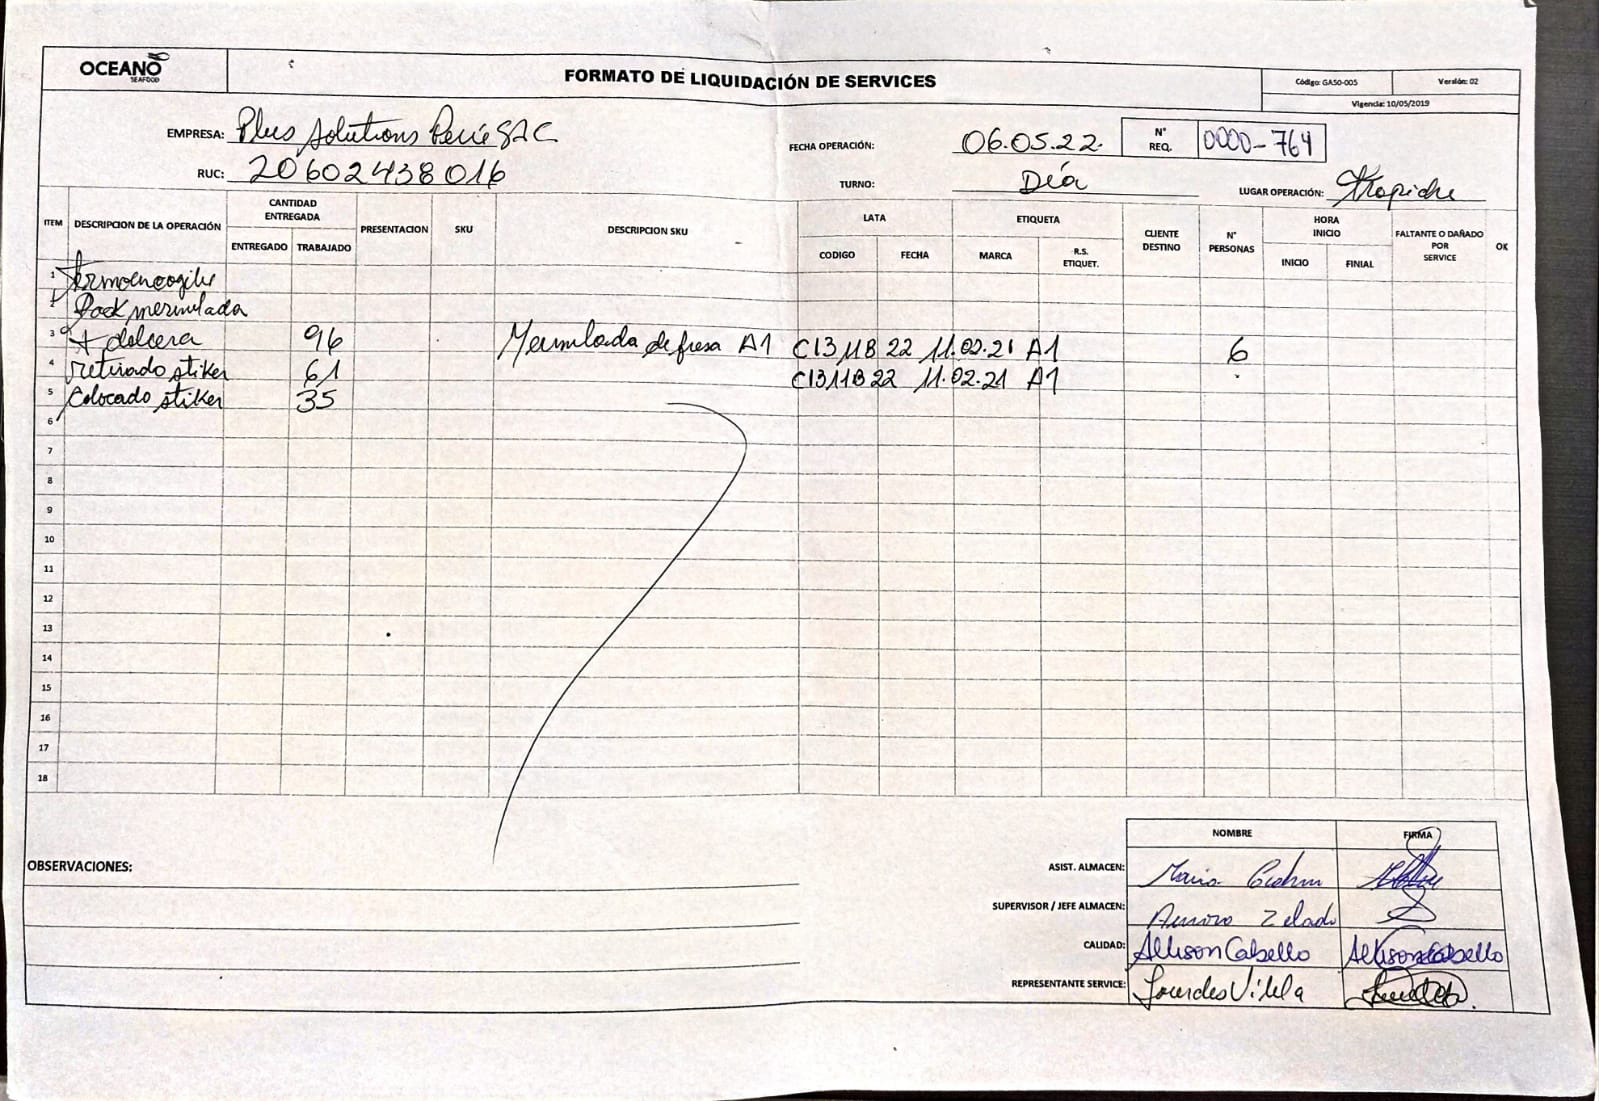 OCEANO
SEAFOOD
FORMATO DE LIQUIDACIÓN DE SERVICES
Código: GA50-005
Versión: 02
Vigencia: 10/05/2019
EMPRESA: Plus Solutions Perú SAC
FECHA OPERACIÓN: 06.05.22.
N° REQ. 0000-764
RUC: 20602438016
TURNO: Día
LUGAR OPERACIÓN: Trapiche
ITEM DESCRIPCION DE LA OPERACIÓN CANTIDAD ENTREGADA PRESENTACION SKU DESCRIPCION SKU LATA ETIQUETA CLIENTE DESTINO N° PERSONAS HORA INICIO FALTANTE O DAÑADO POR SERVICE OK
ENTREGADO TRABAJADO CODIGO FECHA MARCA R.S. ETIQUET. INICIO FINIAL
1 termoencogile
2 Pack mermelada
3 + dulcera 96 Mermelada de fresa A1 C1311B 22 11.02.21 A1 6
4 retirado stiker 61 C1311B 22 11.02.21 A1
5 Colocado stiker 35
6
7
8
9
10
11
12
13
14
15
16
17
18
NOMBRE FIRMA
OBSERVACIONES:
ASIST. ALMACEN: Maria
SUPERVISOR / JEFE ALMACEN: Zelada
CALIDAD: Allison Cabello Allison Cabello
REPRESENTANTE SERVICE: Lourdes Vilela